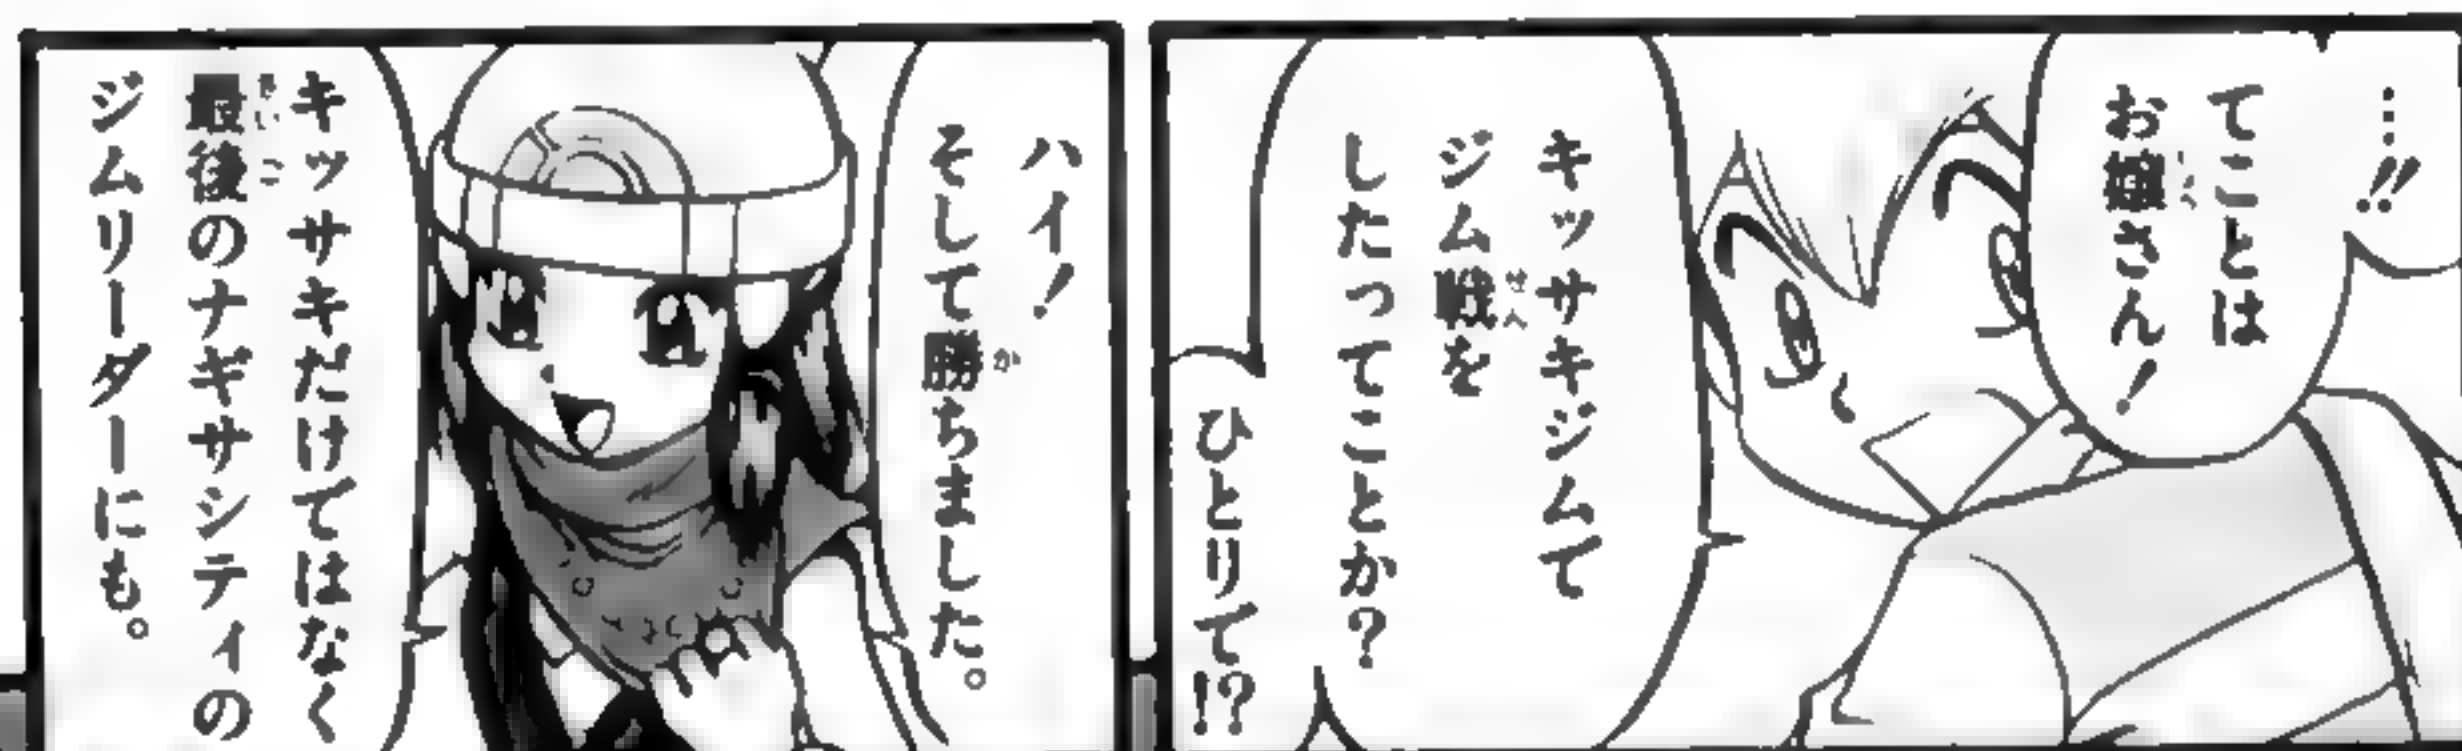 …!!
てことは
お嬢さん!
キッサキジムで
ジム戦を
したってことか?
ひとりで!?
ハイ!
そして勝ちました。
キッサキだけではなく
最後のナギサシティの
ジムリーダーにも。